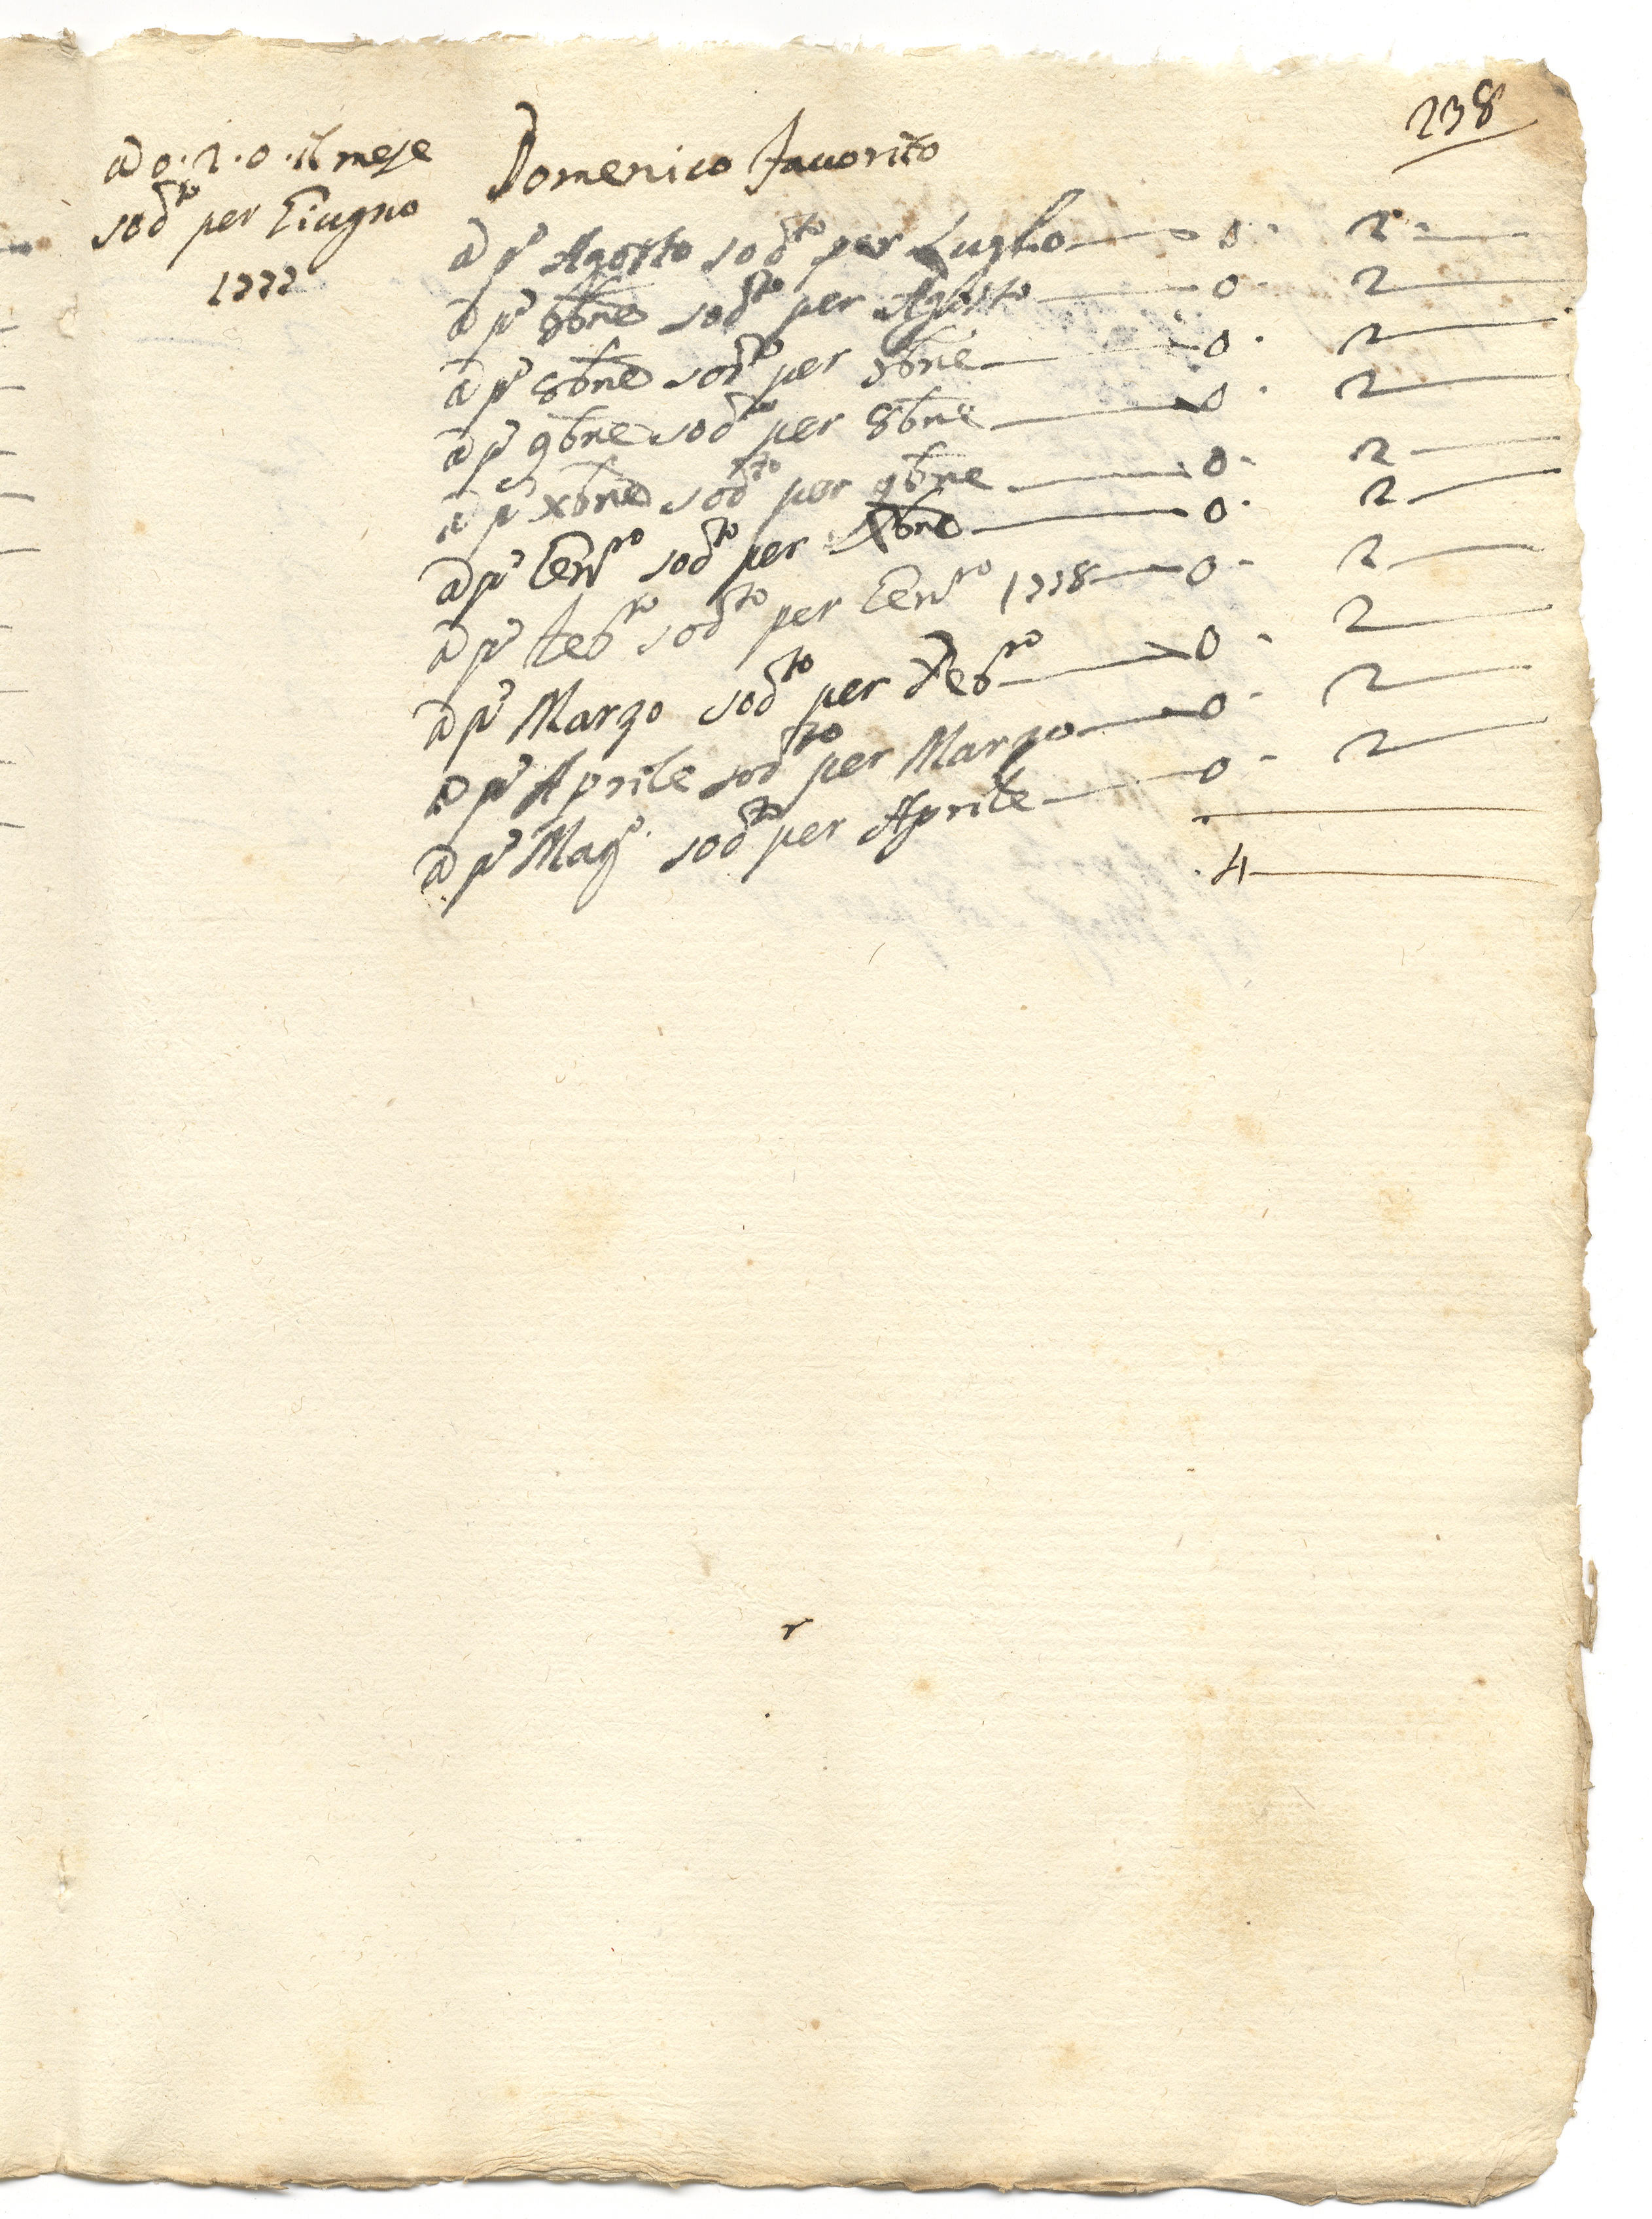 238
à 0.2.0 il mese
sod.to per Giugno
1777
Domenico Fauorito
à p.o Agosto sod.to per Luglio — 0. 2. —
à p.o 7bre sod.to per Agosto — 0. 2 —
à p.o 8bre sod.to per 7bre — 0. 2 —
à p.o 9bre sod.to per 8bre — 0. 2 —
à p.o Xbre sod.to per 9bre — 0. 2 —
à p.o Genn.ro sod.to per Xbre — 0. 2 —
à p.o Feb.ro sod.to per Genn.ro 1778 — 0. 2 —
à p.o Marzo sod.to per Feb.ro — 0. 2 —
à p.o Aprile sod.to per Marzo — 0. 2 —
à p.o Mag.o sod.to per Aprile — 0. 2 —
4 —